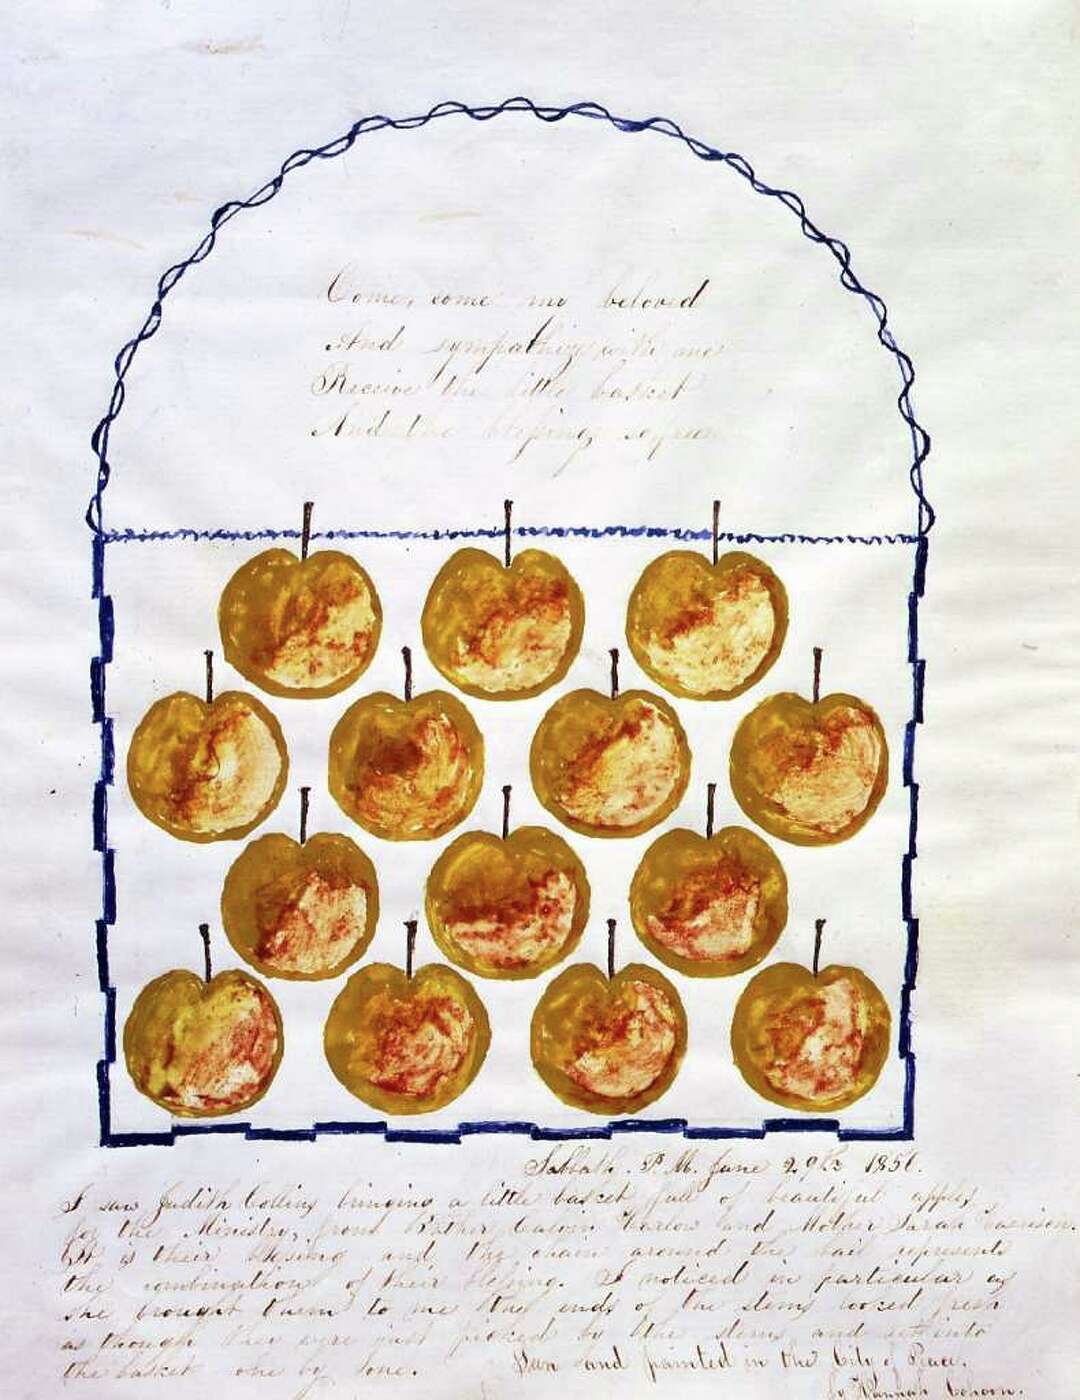 Come, come my beloved
And sympathize with me
Receive the little basket
And the blessing so free
Sabbath. P.M. June 29th 1856.
I saw Judith Collins bringing a little basket full of beautiful apples
for the Ministry, from Father Calvin Harlow and Mother Sarah Harrison.
It is their blessing and the chain around the bail represents
the combination of their blessing. I noticed in particular as
she brought them to me the ends of the stems looked fresh
as though they were just picked by the stems and set into
the basket one by one. Seen and painted in the City of Peace.
by Hannah Cohoon.